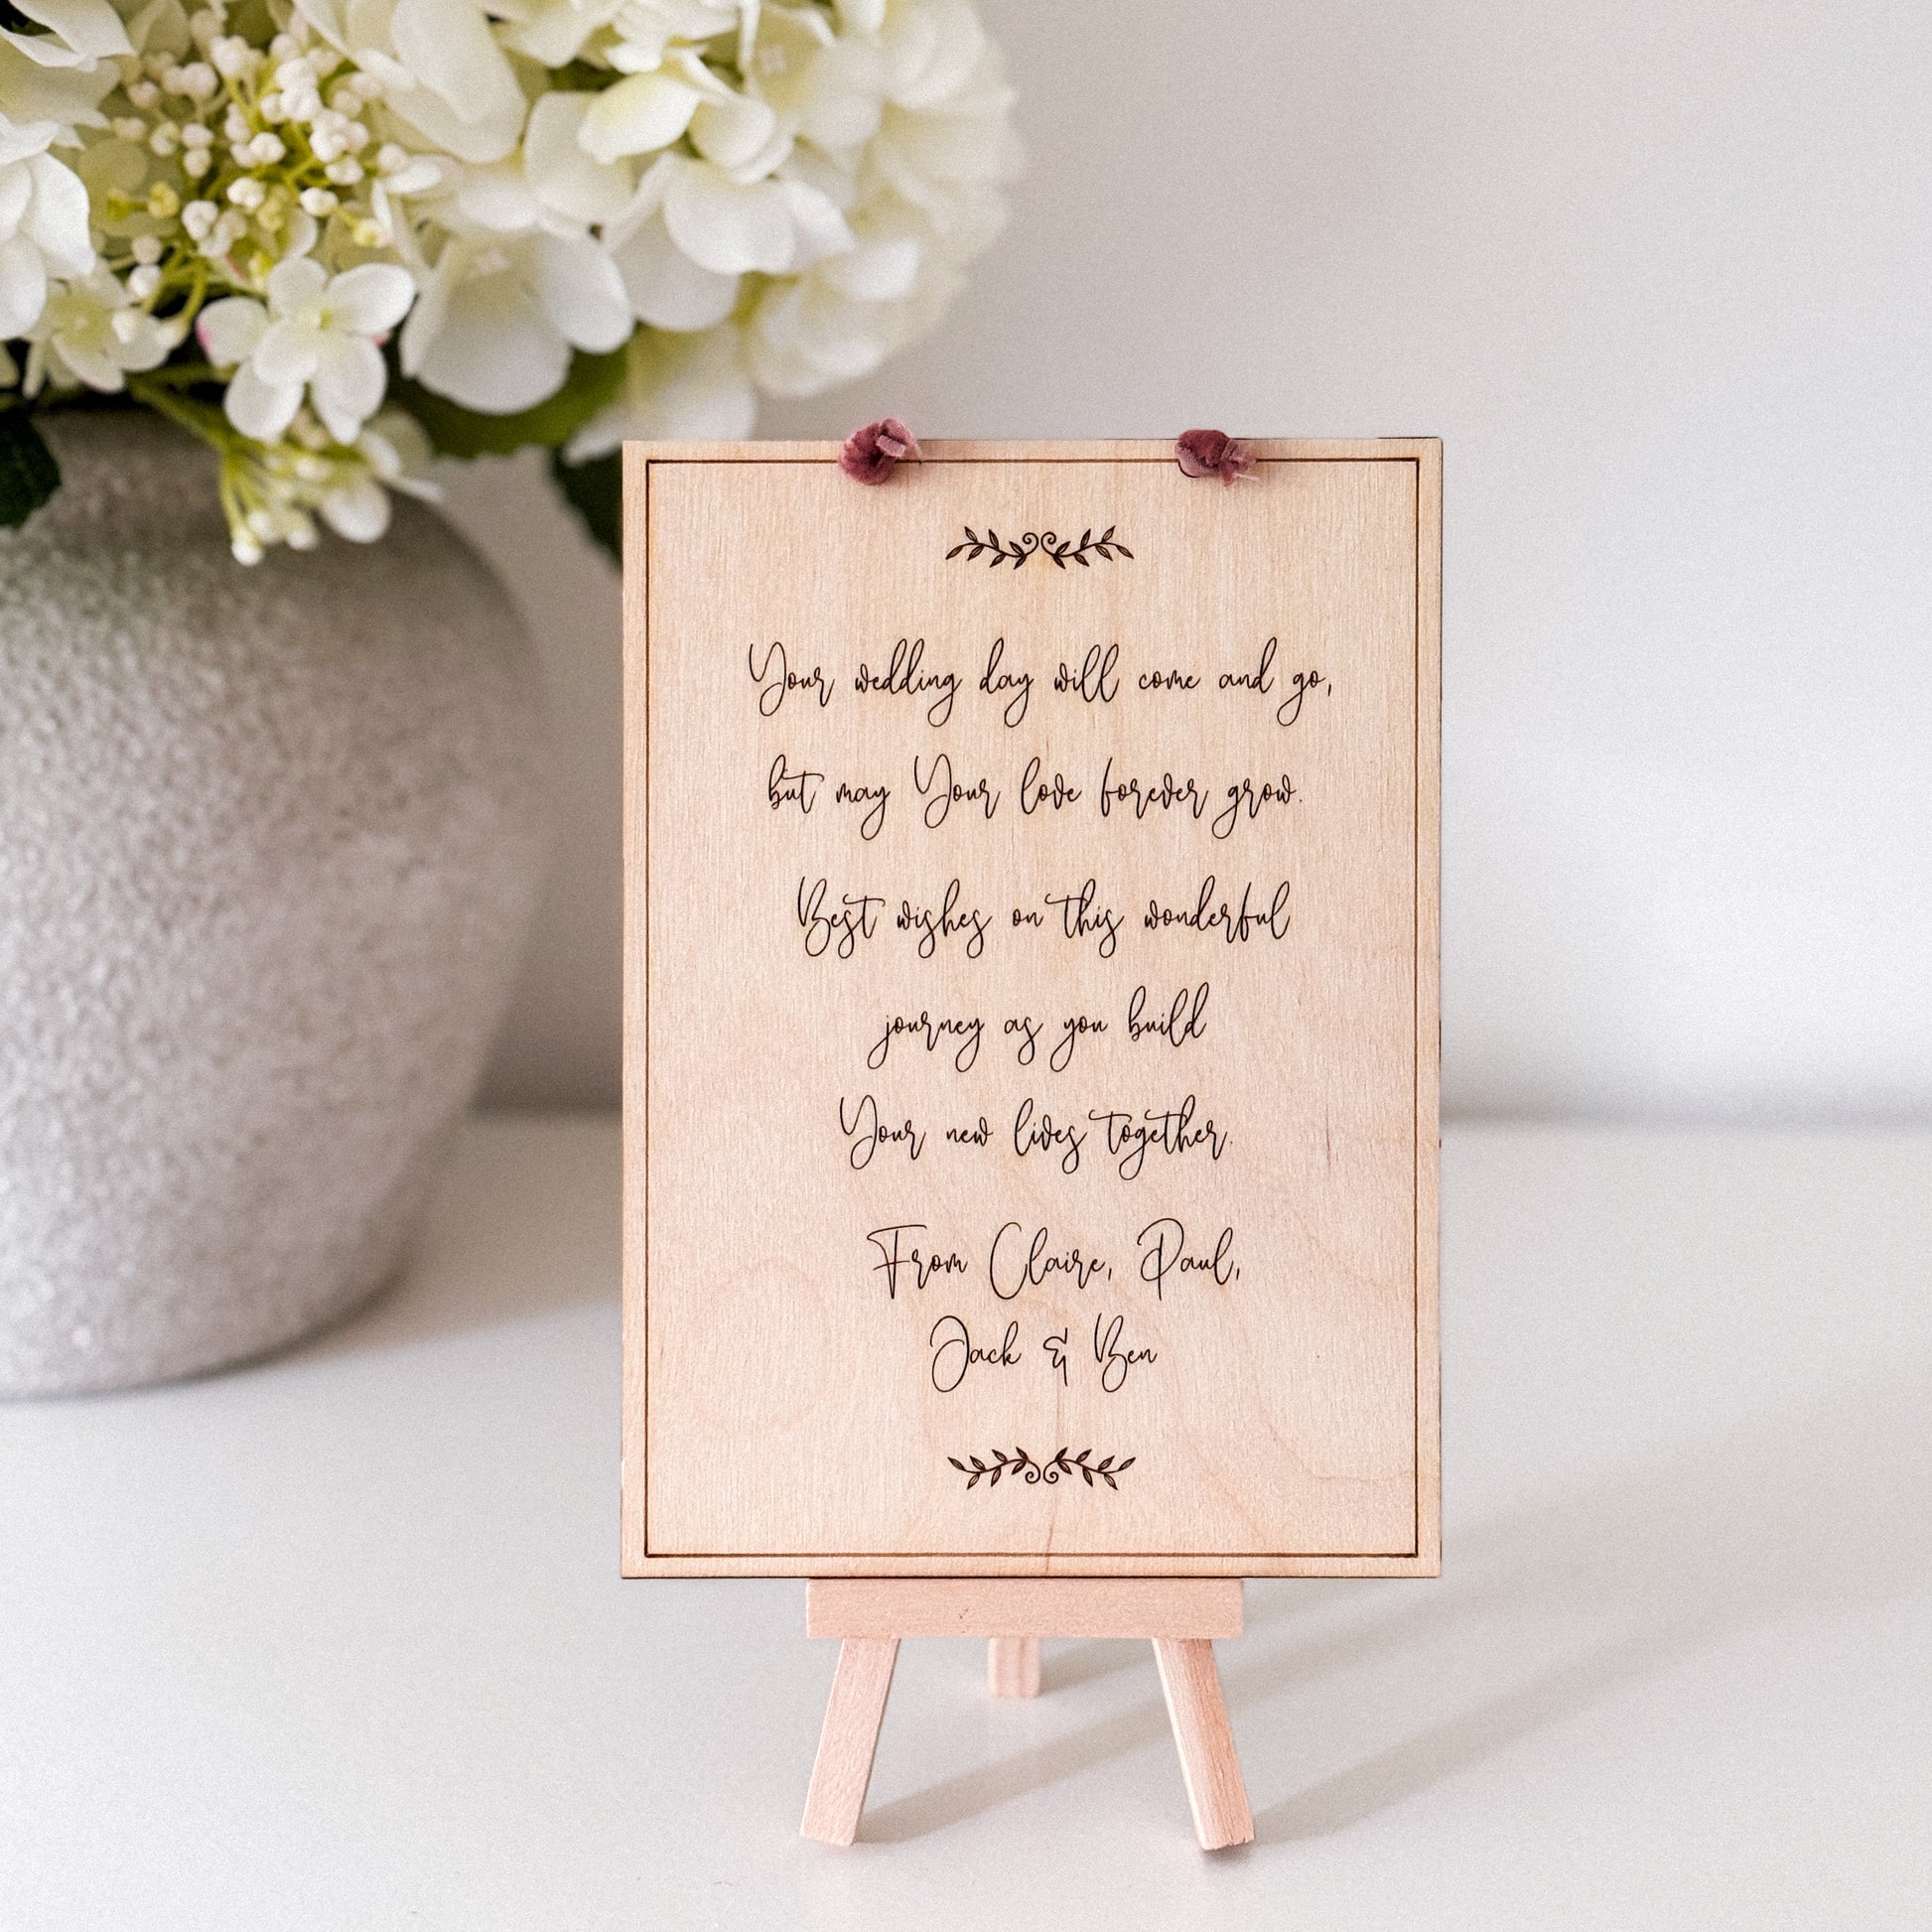 Your wedding day will come and go,
but may Your love forever grow.
Best wishes on this wonderful
journey as you build
Your new lives together.
From Claire, Paul,
Jack & Ben